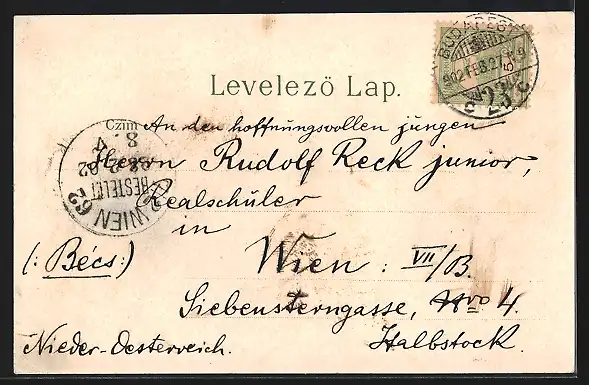 BUDAPEST
902 FEB. 27
Levelező Lap.
Czim
An den hoffnungsvollen jungen
Herrn Rudolf Reck junior,
Realschüler
in
(: Bécs :) Wien : VII/B.
Siebensterngasse, Nro 4.
Nieder-Oesterreich. Halbstock.
WIEN 62
BESTELLT
28.2.02